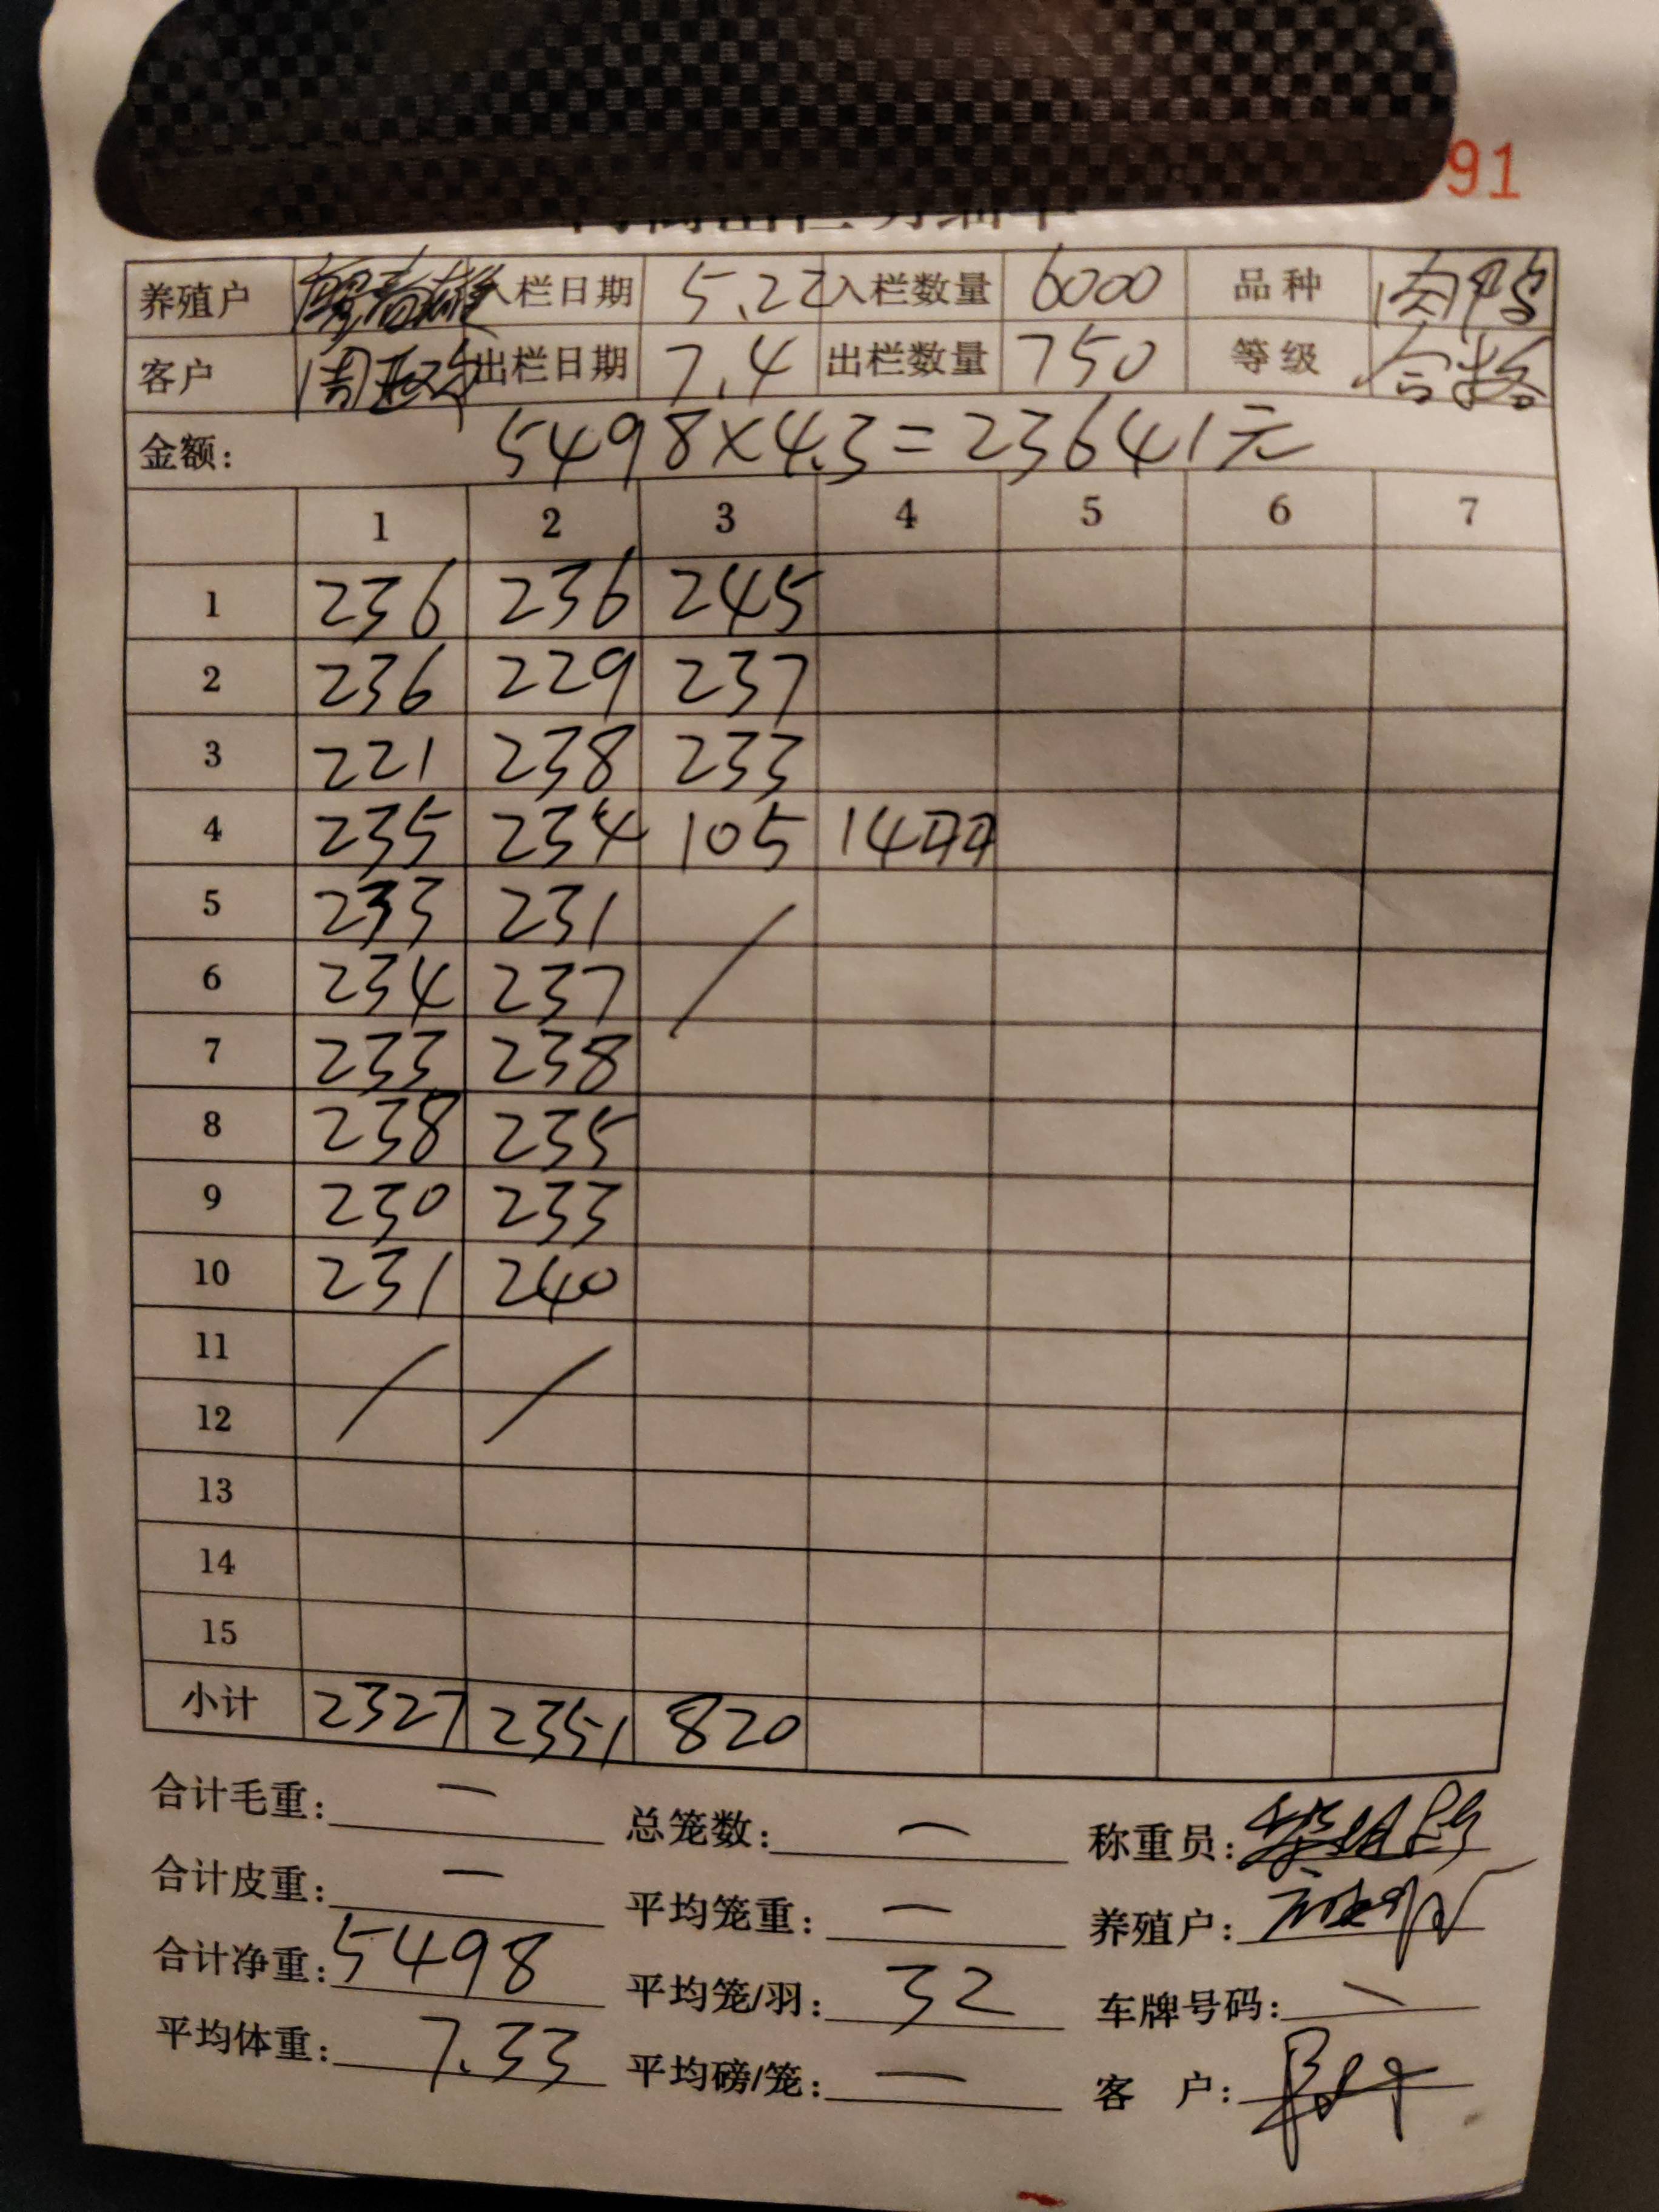 91
养殖户 入栏日期 5.22 入栏数量 6000 品种 肉鸭
客户 出栏日期 7.4 出栏数量 750 等级 合格
金额: 5498×4.3=23641元
1 2 3 4 5 6 7
1 236 236 245
2 236 229 237
3 221 238 233
4 235 234 105 14
5 233 231 /
6 234 237
7 233 238
8 238 235
9 230 233
10 231 240
11 / /
12
13
14
15
小计 2327 2351 820
合计毛重: — 总笼数: — 称重员:
合计皮重: — 平均笼重: — 养殖户:
合计净重: 5498 平均笼/羽: 32 车牌号码: \
平均体重: 7.33 平均磅/笼: — 客户: